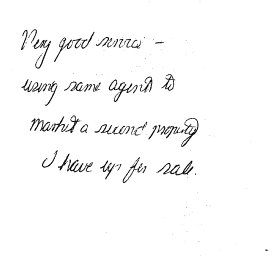 Very good service –
using same agent to
market a second property
I have up for sale.